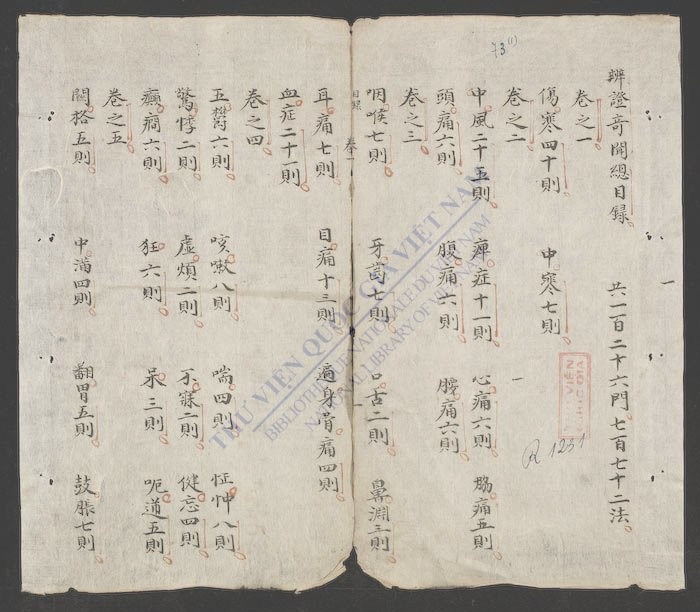 73 (1)
辨證奇聞總目錄 共一百二十六門七百七十二法
卷之一
傷寒四十則 中寒七則
卷之二
中風二十五則 痺症十一則 心痛六則 脇痛五則
頭痛六則 腹痛六則 腰痛六則
卷之三
咽喉七則 牙蔔七則 口舌二則 鼻淵三則
目錄 卷一
耳痛七則 目痛十三則 遍身骨痛四則
血症二十一則
卷之四
五欝六則 咳嗽八則 喘四則 怔忡八則
驚悸二則 虛煩二則 不寐二則 健忘四則
癲癇六則 狂六則 呆三則 呃逆五則
卷之五
關格五則 中滿四則 翻胃五則 鼓脹七則
R 1251
THƯ VIỆN QUỐC GIA VIỆT NAM
BIBLIOTHEQUE NATIONALE DU VIETNAM
NATIONAL LIBRARY OF VIETNAM